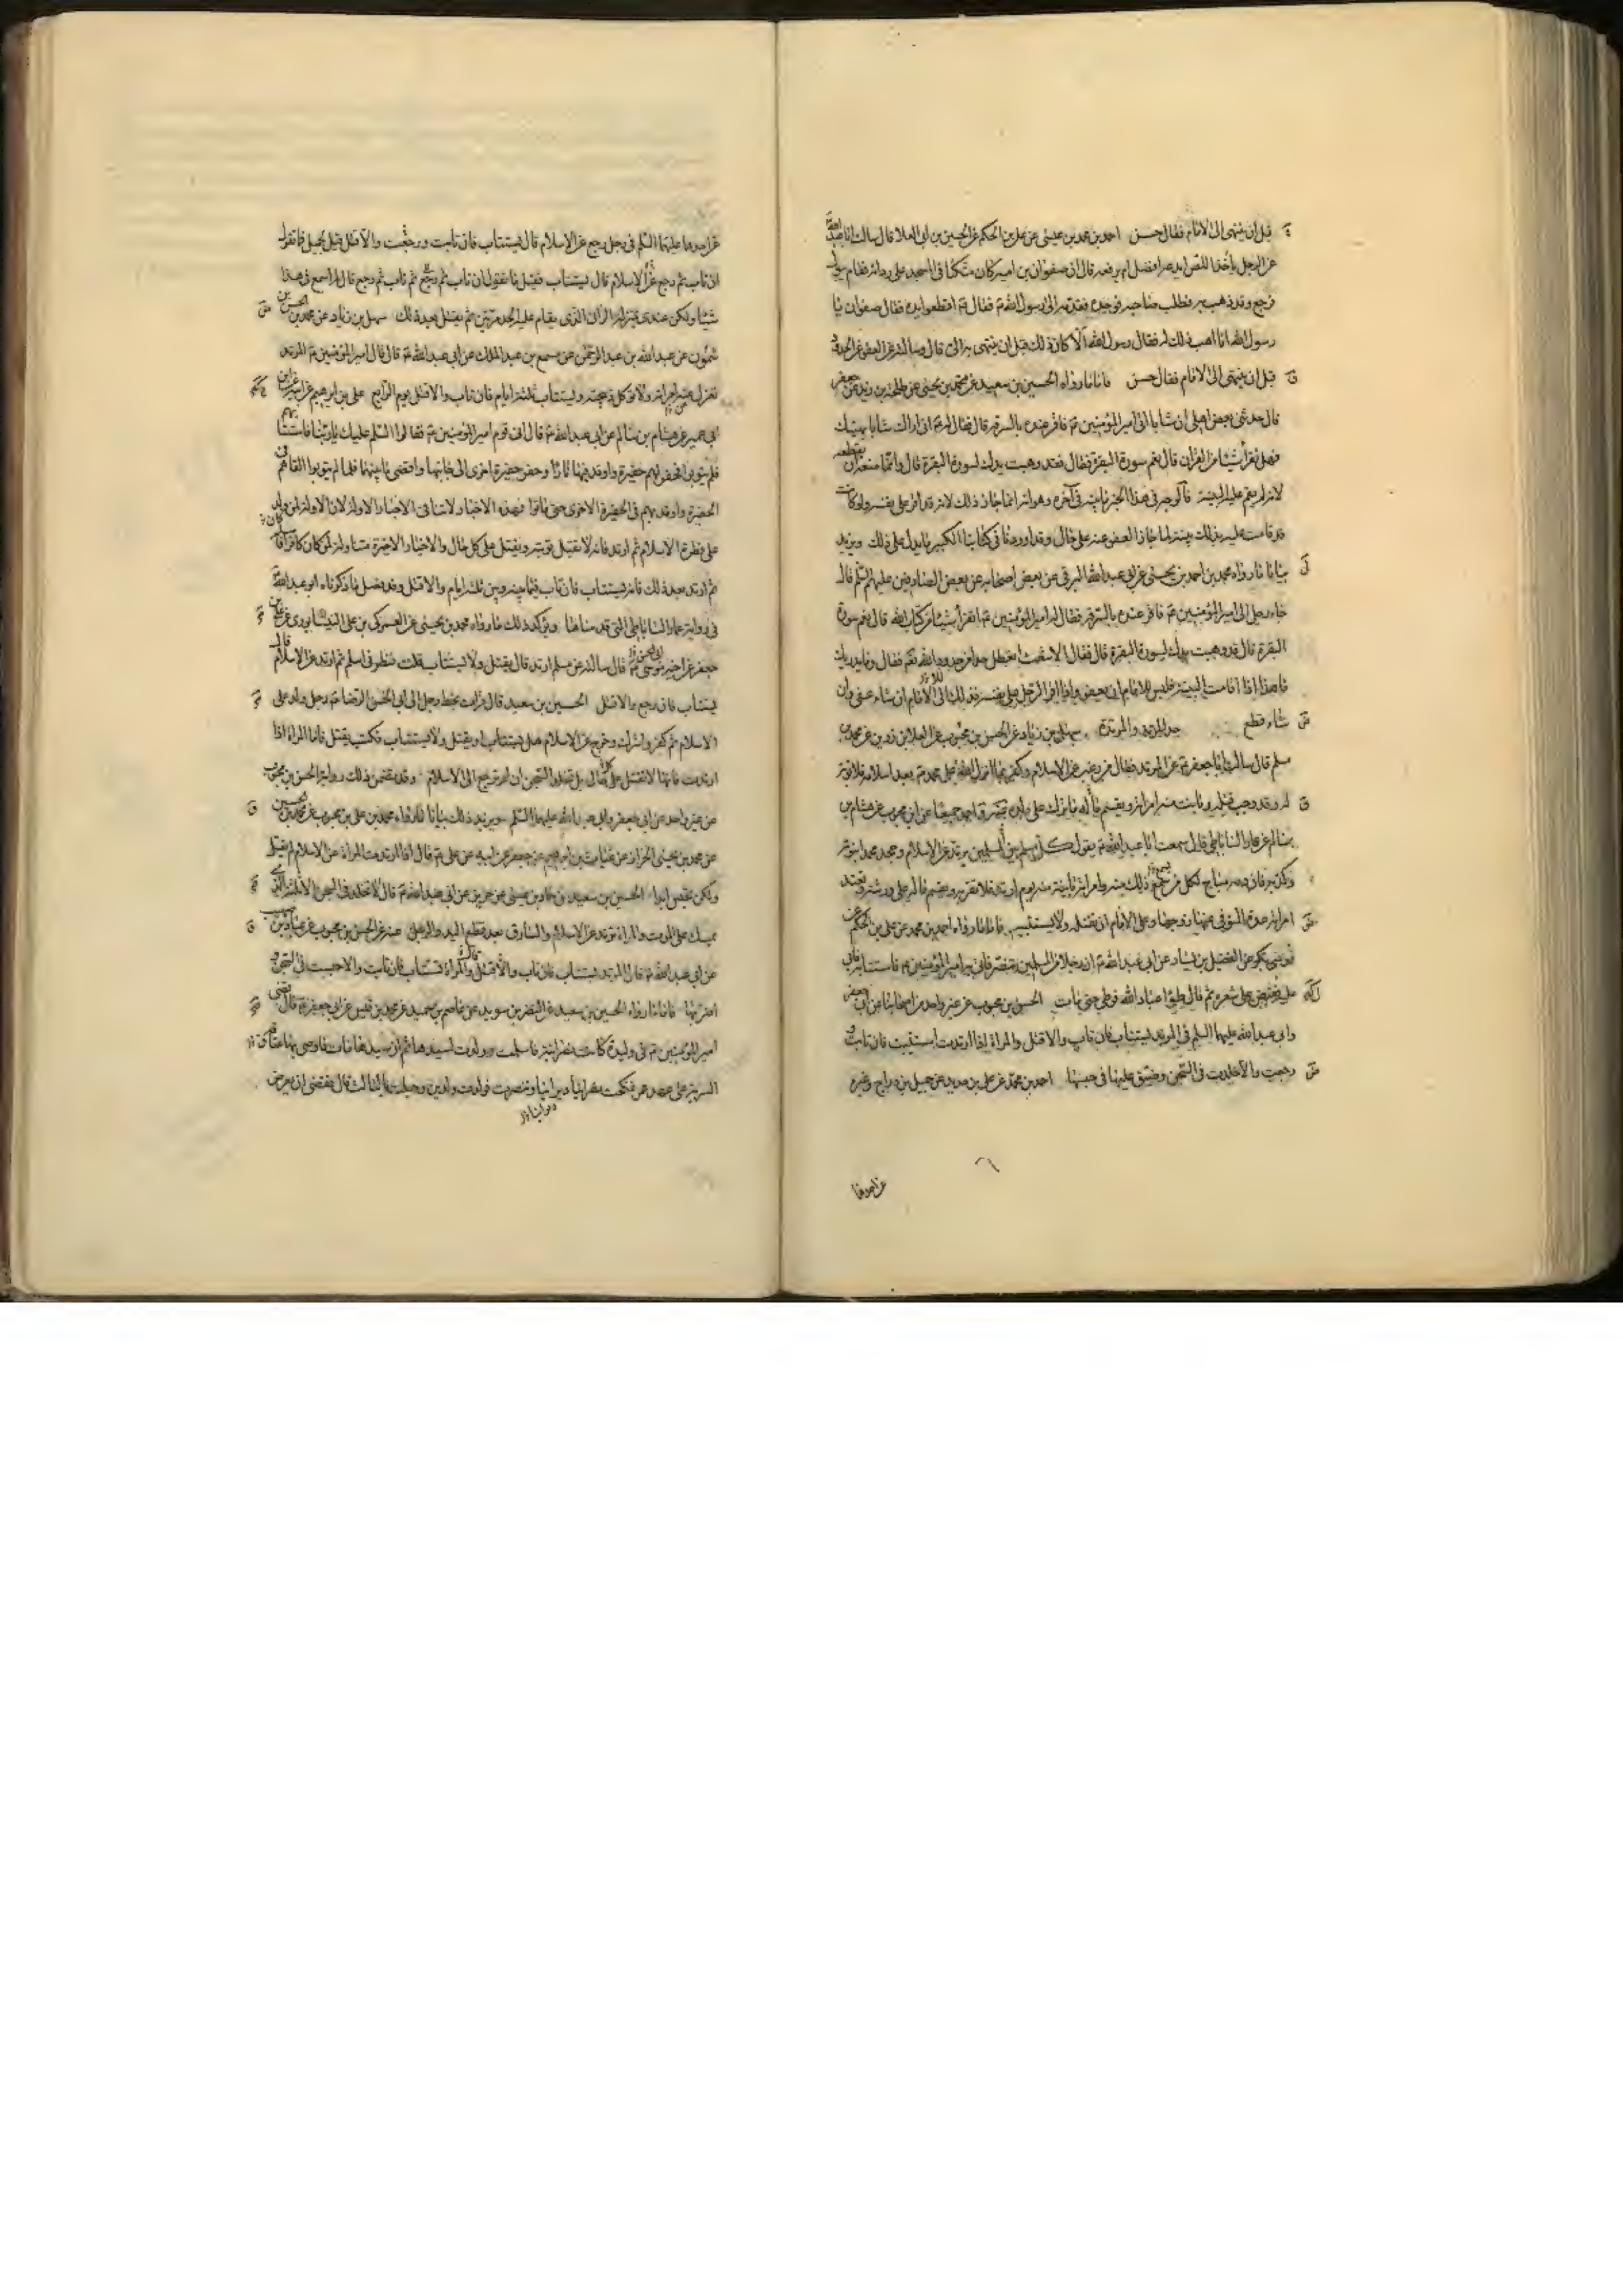 قبل ان ينتهى الى الامام فقال حسن احمد بن محمد بن عيسى عن على بن الحكم عن الحسين بن ابى العلا قال سالت ابا عبد الله
عن الرجل يأخذ اللص يدعه افضل ام يرفعه قال ان صفوان بن امية كان متكئا فى المسجد على ردائه فقام يبول
فرجع وقد ذهب به فطلب صاحبه فوجده فقدمه الى رسول الله ص فقال ع اقطعوا يده فقال صفوان يا
رسول الله انا اهب ذلك له فقال رسول الله الا كان ذلك قبل ان ينتهى به الى قال وسالته عن العفو عن الحدود
قبل ان ينتهى الى الامام فقال حسن فاما ما رواه الحسين بن سعيد عن محمد بن يحيى عن طلحة بن زيد عن جعفر
قال حدثنى بعض اهلى ان شابا اتى امير المؤمنين ع فاقر عنده بالسرقة قال فقال له ع انى اراك شابا
فهل تقرأ شيئا من القران قال نعم سورة البقرة فقال فقد وهبت يدك لسورة البقرة قال وانما منعه ان يقطعه
لانه لم يقم عليه البينة فالوجه فى هذا الخبر ما بينه فى آخره وهو انه انما جاز ذلك لانه قد اقر على نفسه ولو كانت
قد قامت عليه بذلك بينة لما جاز العفو عنه على حال وقد اوردنا فى كتابنا الكبير ما يدل على ذلك ويزيد
بيانا ما رواه محمد بن احمد بن يحيى عن ابى عبد الله البرقى عن بعض اصحابه عن بعض الصادقين عليهم السلم قال
جاء رجل الى امير المؤمنين ع فاقر عنده بالسرقة فقال له امير المؤمنين ع اتقرأ شيئا من كتاب الله قال نعم سورة
البقرة قال قد وهبت يدك لسورة البقرة قال فقال الاشعث اتعطل حدا من حدود الله تعم فقال وما يدريك
ما هذا اذا قامت البينة فليس للامام ان يعفو واذا اقر الرجل على نفسه فذلك الى الامام ان شاء عفى وان
شاء قطع حد المرتد والمرتدة سهل بن زياد عن الحسن بن محبوب عن العلا بن رزين عن محمد بن
مسلم قال سالت ابا جعفر ع عن المرتد فقال من رغب عن الاسلام وكفر بما انزل الله على محمد ص بعد اسلامه فلا توبة
له وقد وجب قتله وبانت منه امراته ويقسم ما له ما ترك على ولده عنه واحمد جميعا عن ابن محبوب عن هشام بن
سالم عن عمار الساباطى قال سمعت ابا عبد الله ع يقول كل مسلم بين المسلمين يرتد عن الاسلام وجحد محمدا نبوته
وكذبه فان دمه مباح لكل من سمع ذلك منه وامراته باينة منه يوم ارتد فلا تقربه ويقسم ماله على ورثته وتعتد
امراته عدة المتوفى عنها زوجها وعلى الامام ان يقتله ولا يستتيبه فاما ما رواه احمد بن محمد عن على بن الحكم عن
موسى بن بكر عن الفضيل بن يسار عن ابى عبد الله ع ان رجلا من المسلمين تنصر فاتى به امير المؤمنين ع فاستتابه فابى
عليه فقبض على شعره ثم قال طئوا عباد الله فوطى حتى مات الحسن بن محبوب عن غير واحد من اصحابنا عن ابى جعفر
وابى عبد الله عليهما السلم فى المرتد يستتاب فان تاب والا قتل والمراة اذا ارتدت استتيبت فان تابت و
رجعت والا خلدت فى السجن وضيق عليها فى حبسها احمد بن محمد عن على بن حديد عن جميل بن دراج وغيره
عن احدهما
عن احدهما عليهما السلم فى رجل رجع عن الاسلام قال يستتاب فان تاب ورجع والا قتل قيل لجميل فما تقول
ان تاب ثم رجع عن الاسلام قال يستتاب فقيل فما تقول ان تاب ثم رجع ثم تاب ثم رجع قال لم اسمع فى هذا
شيئا ولكن عندى بمنزلة الزانى الذى يقام عليه الحد مرتين ثم يقتل بعد ذلك سهل بن زياد عن محمد بن الحسن بن
شمون عن عبد الله بن عبد الرحمن عن مسمع بن عبد الملك عن ابى عبد الله ع قال قال امير المؤمنين ع المرتد
تعزل عنه امراته ولا تؤكل ذبيحته ويستتاب ثلثة ايام فان تاب والا قتل يوم الرابع على بن ابراهيم عن ابيه عن ابن
ابى عمير عن هشام بن سالم عن ابى عبد الله ع قال اتى قوم امير المؤمنين ع فقالوا السلم عليك يا ربنا فاستتابهم
فلم يتوبوا فحفر لهم حفيرة واوقد فيها نارا وحفر حفيرة اخرى الى جانبها وافضى ما بينهما فلما لم يتوبوا القاهم فى
الحفيرة واوقد بهم فى الحفيرة الاخرى حتى ماتوا فهذه الاخبار لا تنافى الاخبار الاولة لان الاولة لمن ولد
على فطرة الاسلام ثم ارتد فانه لا تقبل توبته ويقتل على كل حال والاخبار الاخيرة متناولة لمن كان كافرا فاسلم
ثم ارتد بعد ذلك فانه يستتاب فان تاب فيما بينه وبين ثلثة ايام والا قتل وقد فصل ما ذكرناه ابو عبد الله ع
فى رواية عمار الساباطى التى قدمناها ويؤكد ذلك ما رواه محمد بن يحيى عن العمركى بن على النيسابورى عن على بن
جعفر عن اخيه موسى ع قال سالته عن مسلم ارتد قال يقتل ولا يستتاب قلت فنصرانى اسلم ثم ارتد عن الاسلام قال
يستتاب فان رجع والا قتل الحسين بن سعيد قال قرات بخط رجل الى ابى الحسن الرضا ع رجل ولد على
الاسلام ثم كفر واشرك وخرج عن الاسلام هل يستتاب او يقتل ولا يستتاب فكتب يقتل فاما المراة اذا
ارتدت فانها لا تقتل على كل حال بل تخلد السجن ان لم ترجع الى الاسلام وقد تضمن ذلك رواية الحسن بن محبوب
عن غير واحد عن ابى جعفر وابى عبد الله عليهما السلم ويزيد ذلك بيانا ما رواه محمد بن على بن محبوب عن محمد بن الحسين
عن محمد بن يحيى الخزاز عن غياث بن ابراهيم عن جعفر عن ابيه عن على ع قال اذا ارتدت المراة عن الاسلام لم تقتل
ولكن تحبس ابدا الحسين بن سعيد عن حماد بن عيسى عن حريز عن ابى عبد الله ع قال لا تخلد فى السجن الا ثلثة الذى
يمسك على الموت والمراة ترتد عن الاسلام والسارق بعد قطع اليد والرجل عنه عن الحسن بن محبوب عن عباد بن صهيب
عن ابى عبد الله ع قال المرتد يستتاب فان تاب والا قتل قال والمراة تستتاب فان تابت والا حبست فى السجن و
اضر بها فاما ما رواه الحسين بن سعيد عن النضر بن سويد عن عاصم بن حميد عن محمد بن قيس عن ابى جعفر ع قال قضى
امير المؤمنين ع فى وليدة كانت نصرانية فاسلمت وولدت لسيدها ثم ان سيدها مات فاوصى بها عتاقة
السرية على عهد عمر فنكحت نصرانيا ديرانيا وتنصرت فولدت ولدين وحبلت بالثالث قال فقضى ان يعرض